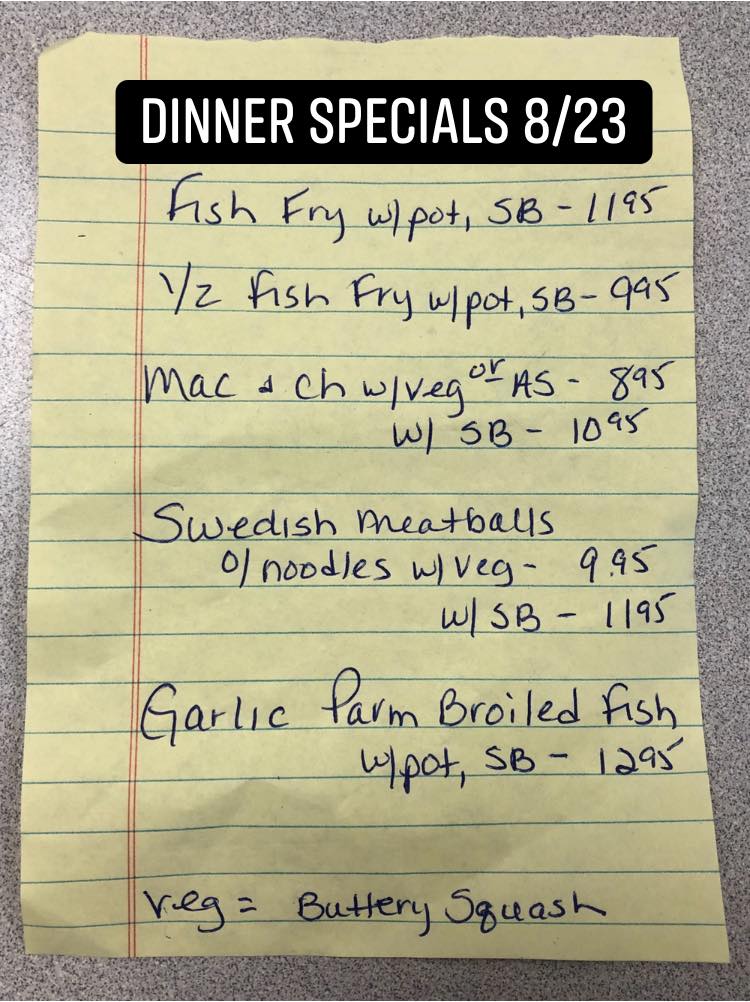 DINNER SPECIALS 8/23
Fish Fry w/pot, SB - 1195
1/2 Fish Fry w/pot, SB - 995
Mac & Ch w/veg or AS - 895
w/ SB - 1095
Swedish Meatballs
o/noodles w/veg - 9.95
w/ SB - 1195
Garlic Parm Broiled Fish
w/pot, SB - 1295
veg = Buttery Squash